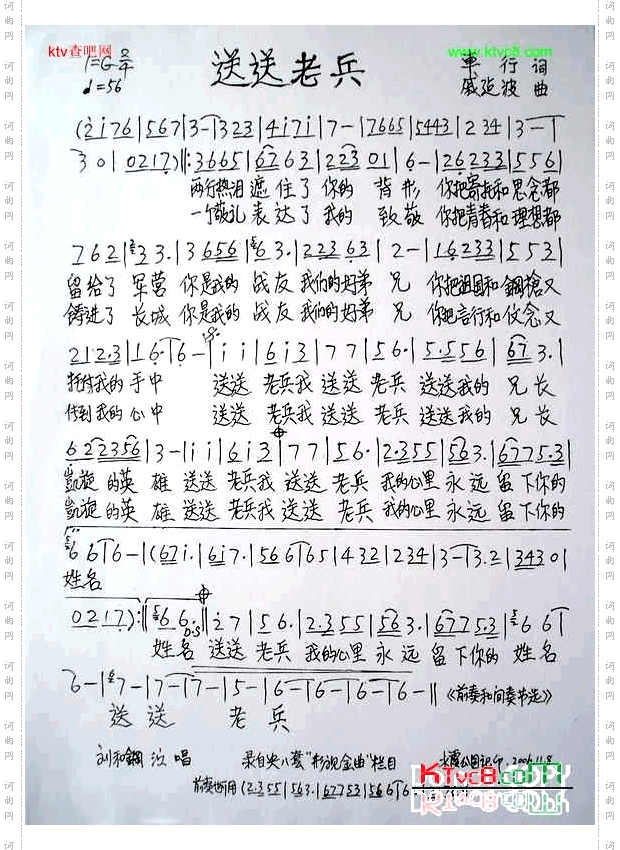 ktv查吧网
www.ktvc8.com
1=G 2/4
♩=56
送送老兵
車 行 词
戚建波 曲
(2 i 7 6 | 5 6 7 | 3 - | 3 3 2 3 | 4 i 7 i | 7 - | 7 6 6 5 | 5 4 4 3 | 2 3 4 | 3 - |
3 0 | 0 2 1 7 ) ‖: 3 6 6 5 | 6 7 6 3 | 2 2 3 0 1 | 6 - | 2 6 2 3 3 | 5 5 6 |
两行热泪 遮 住 了 你的 背 影 你把寄托和 思念都
一个敬礼 表 达 了 我的 致 敬 你把青春和 理想都
7 6 2 | 3 3. | 3 6 5 6 | 6 3. | 2 2 3 6 3 | 2 - | 1 6 2 3 3 | 5 5 3 |
留给了 军营 你是我的 战友 我们的好弟 兄 你把祖国和 鋼槍又
铸进了 长城 你是我的 战友 我们的好弟 兄 你把言行和 信念又
2 1 2. 3 | 1 6. | 6 - | i i | 6 i 3 | 7 7 | 5 6. | 5. 5 5 6 | 6 7 3. |
托给我的 手中 送送 老兵我 送送 老兵 送送我的 兄长
传到我的 心中 送送 老兵我 送送 老兵 送送我的 兄长
6 2 2 3 5 6 | 3 - | i i | 6 i 3 | 7 7 | 5 6. | 2. 3 5 5 | 5 6 3. | 6 7 7 5. 3 |
凱旋 的英 雄 送送 老兵我 送送 老兵 我的心里 永远 留下你的
凱旋 的英 雄 送送 老兵我 送送 老兵 我的心里 永远 留下你的
6 6 | 6 - | ( 6 7 i. | 6 i 7. | 5 6 6 | 6 5 | 4 3 2 | 2 3 4 | 3 - | 3 3. 2 | 3 4 3 0 |
姓名
0 2 1 7 ) :‖ 6 6. D.S ‖ 2 7 | 5 6. | 2. 3 5 5 | 5 6 3. | 6 7 7 5. 3 | 6 6 |
姓名 送送 老兵 我的心里 永远 留下你的 姓名
6 - | 7 - | 7 - | 7 - | 5 - | 6 - | 6 - | 6 - | 6 - ‖ 《前奏和间奏节选》
送 送 老 兵
刘和鋼 演 唱 录自央八套"影视金曲"栏目 2006.11.8
前奏也可用 (2. 3 5 5 | 5 6 3. | 6 7 7 5 3 | 5 6 6 | 6
KTvc8.com
词曲网